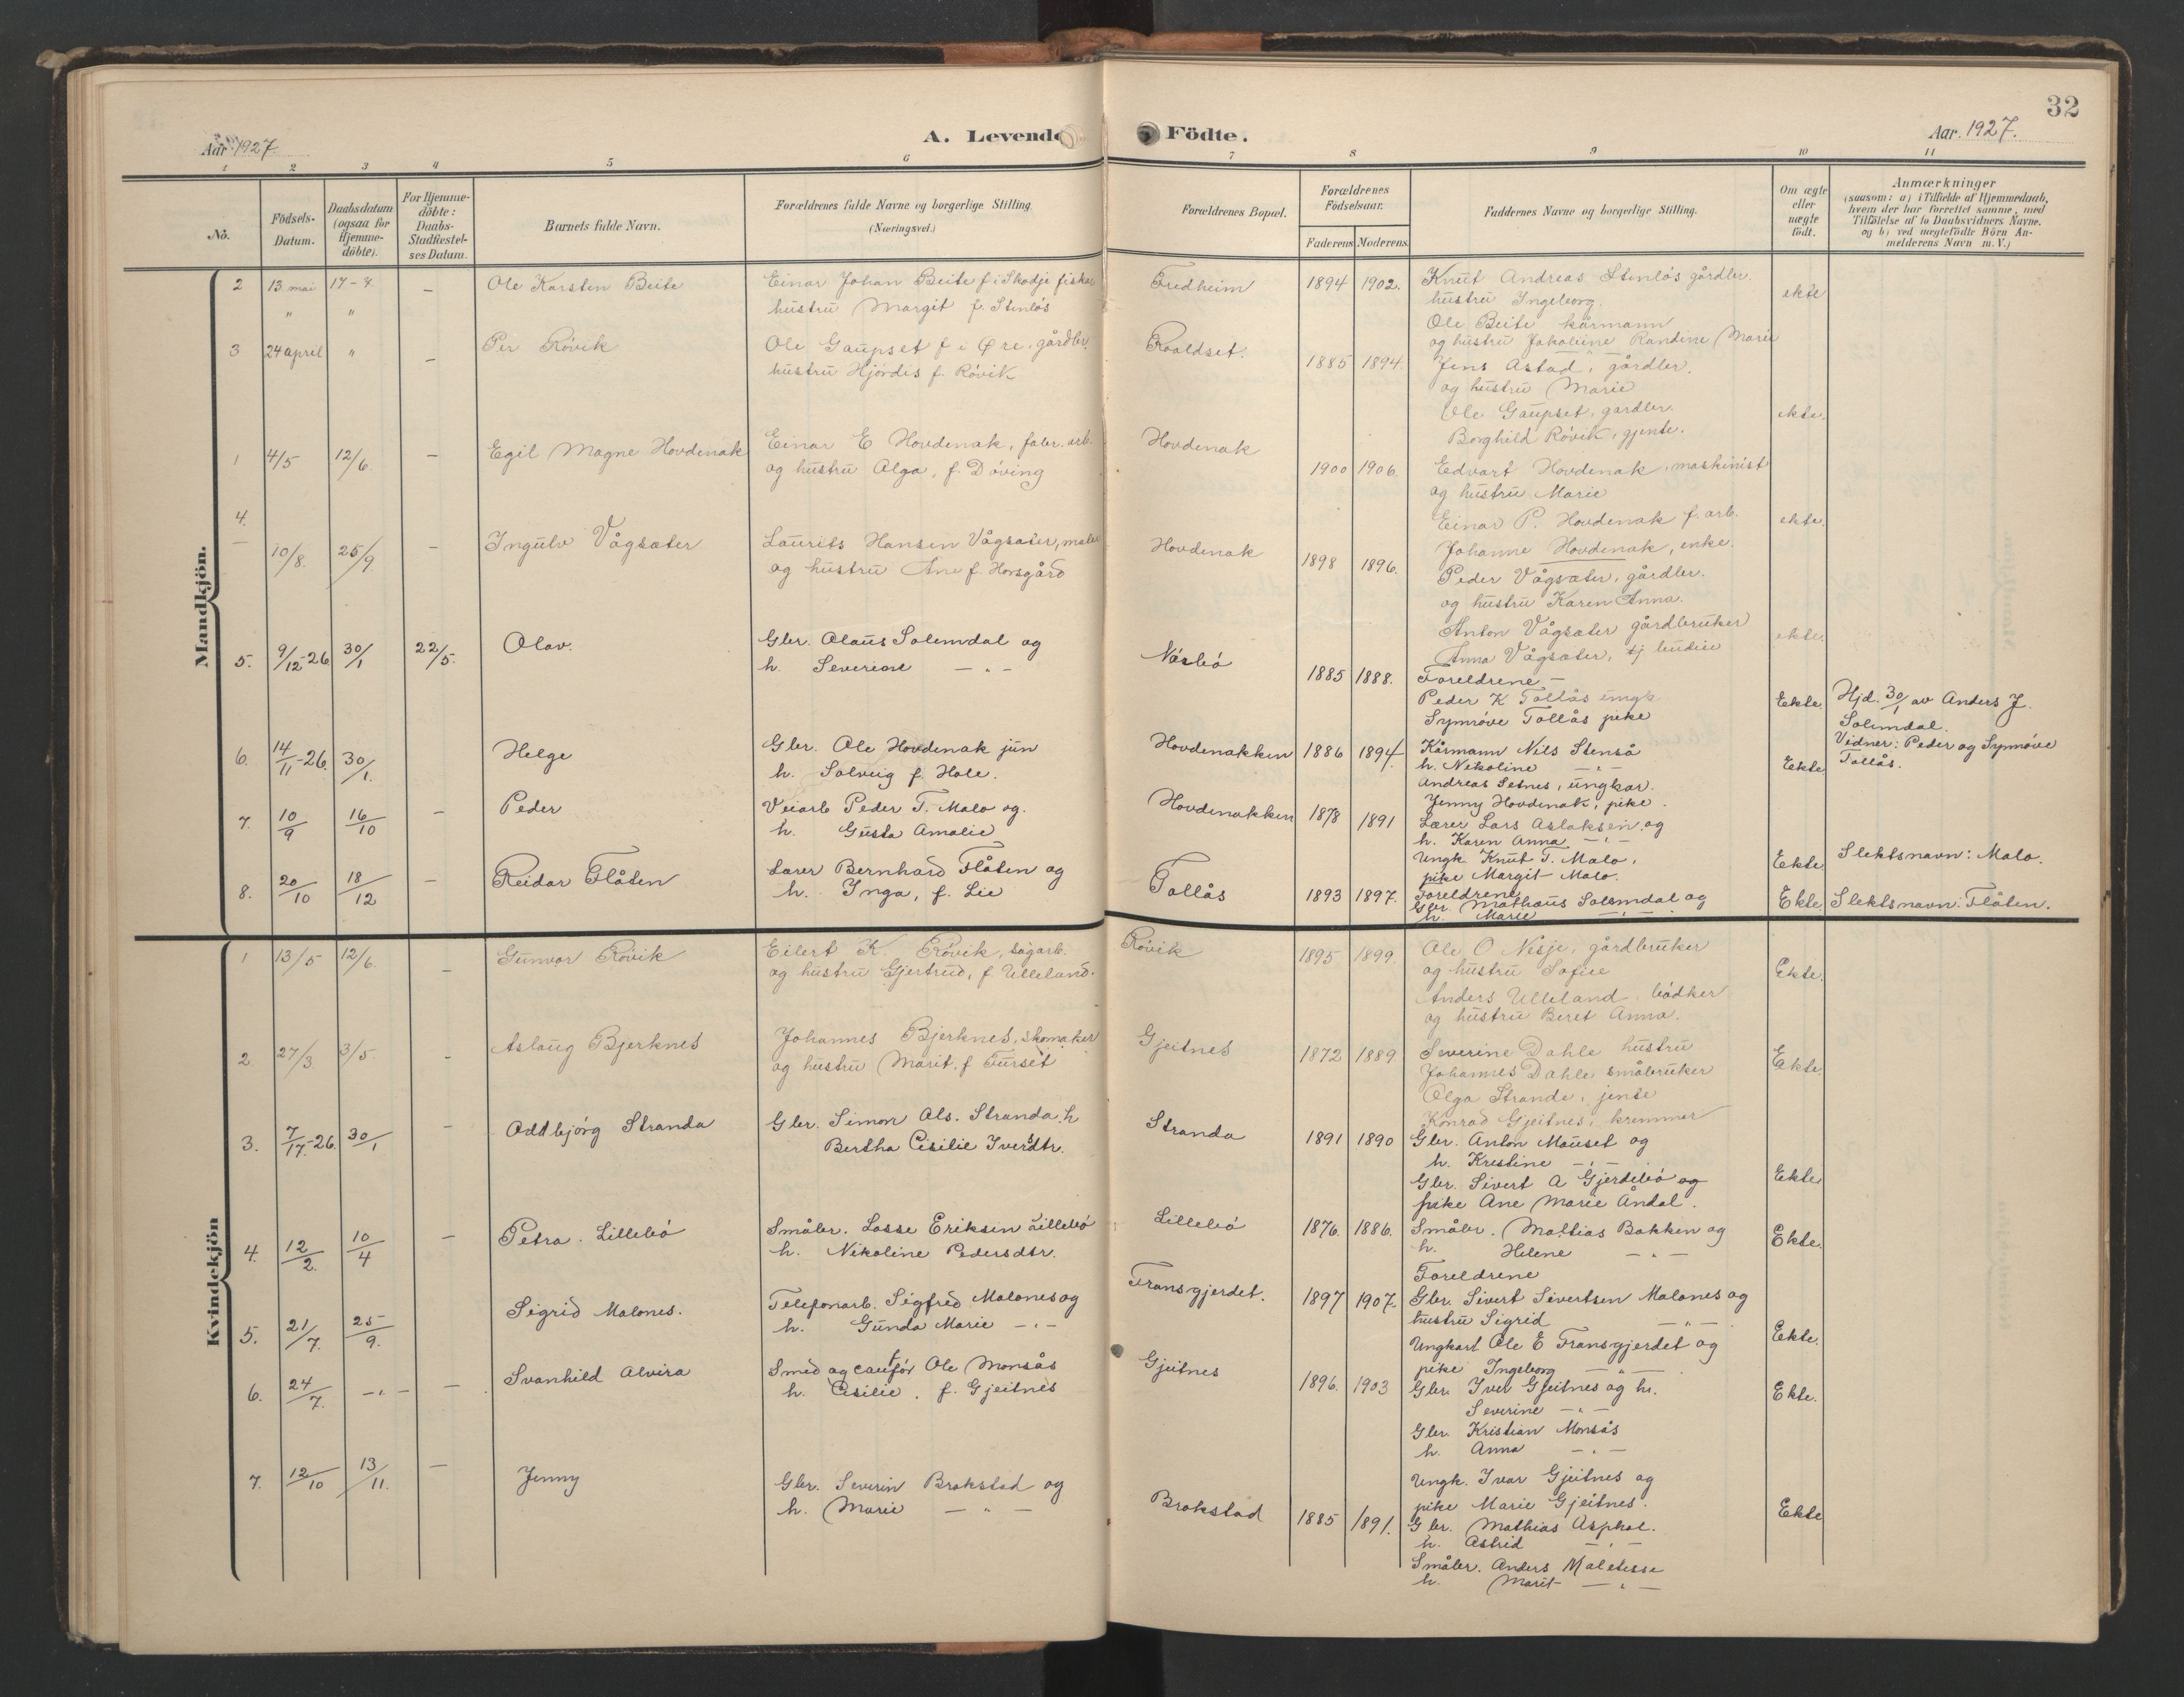 32
Aar 1927.
A. Levende Födte.
Aar. 1927.
1 2 3 4 5 6 7 8 9 10 11
No.
Födsels-Datum.
Daabsdatum (ogsaa for Hjemmedöbte).
For Hjemmedöbte: Daabs-Stadfestelses Datum.
Barnets fulde Navn.
Forældrenes fulde Navne og borgerlige Stilling. (Næringsvei.)
Forældrenes Bopæl.
Forældrenes Födselsaar.
Faderens Moderens.
Faddernes Navne og borgerlige Stilling.
Om ægte eller uægte födt.
Anmærkninger
(saasom: a) i Tilfælde af Hjemmedaab,
hvem der har forrettet samme, med
Tilföielse af to Daabsvidners Navne.
og b) ved uægtefödte Börn An-
melderens Navn m. V.)
Mandkjön.
2 13. mai 17-4. — Ole Karsten Beite
Einar Johan Beite f. i Skodje fisker
hustru Margit f. Stenlös
Fredheim 1894 1902.
Knut Andreas Stenlös gårdbr.
hustru Ingeborg.
Ole Beite kårmann
og hustru Jakobine Randine Marie
ekte
3 24 april " — Per Rövik
Ole Gaupset f. i Øre, gårdbr.
hustru Hjördis f. Rövik
Roaldset. 1885 1894.
Jens Astad, gårdbr.
og hustru Marie
Ole Gaupset, gardbr.
Borghild Rövik, gjente.
ekte.
1 4/5 12/6. — Egil Magne Hovdenak
Einar E Hovdenak, fabr. arb.
og hustru Alga, f. Döving
Hovdenak 1900 1906.
Edvart Hovdenak, maskinist
og hustru Marie
Einar P. Hovdenak f. arb.
Johanne Hovdenak, enke.
ekte.
4. 10/8. 25/9. — Ingulv Vågsæter
Laurits Hansen Vågsæter, maler
og hustru Ane f. Horsgård
Hovdenak 1898 1896.
Peder Vågsæter, gårdbr.
og hustru Karen Anna.
Anton Vågsæter gårdbruker
Anna Vågsæter, tj budeie
ekte.
5. 9/12-26 30/1 22/5. Olav.
Gbr. Olaus Solemdal og
h. Severine — " —
Näsbö 1885 1888.
Foreldrene —
Peder K Tollås ungk.
Synnöve Tollås pike
Ekte. Hjd. 30/1 av Anders J.
Solemdal.
Vidner: Peder og Synnöve
Tollås.
6. 14/11-26. 30/1. Helge
Gbr. Ole Hovdenak jun
h. Solveig f. Hole.
Hovdenakken 1886 1894.
Kårmann Nils Stenså
h. Nikoline — " —
Andreas Setnes, ungkar.
Jenny Hovdenak, pike.
Ekte
7. 10/9 16/10 — Peder
Veiarb Peder T. Malo og.
h. Gusta Amalie
Hovdenakken 1878 1891
Lærer Lars Aslaksen og
h. Karen Anna — " —
Ungk. Knut T. Malo,
pike Margit Malo.
Ekte Slektsnavn: Malo.
8. 20/10 18/12 — Reidar Flåten
Lærer Bernhard Flåten og
h. Inga, f. Lie
Tollås 1893 1897.
Foreldrene
Gbr. Mathæus Solemdal og
h. Marie — " —
Ekte Slektsnavn: Flåten.
Kvindekjön
1 13/5 12/6. — Gunvor Rövik
Eilert K. Rövik, sagarb.
og hustru Gjertrud, f Ulleland.
Rövik 1895 1899.
Ole O Nesje, gårdbruker
og hustru Sofie
Anders Ulleland, bödker
og hustru Beret Anna.
Ekte.
2 27/3. 3/5. — Aslaug Bjerknes
Johannes Bjerknes, skomaker
og hustru Marit, f Furset
Gjeitnes 1872 1889
Severine Dahle hustru
Johannes Dahle småbruker
Olga Strande, jente
Konrad Gjeitnes, kremmer
Ekte.
3. 7/17.-26 30/1 — Oddbjörg Stranda
Gbr. Simon Ols. Stranda h
Bertha Cisilie Iversdtr.
Stranda 1891 1890
Gbr. Anton Mauset og
h. Kristine — " —
Gbr. Sivert A Gjerdebö og
pike Ane Marie Åndal.
Ekte
4. 12/2. 10/4 — Petra. Lillebö
Småbr. Lasse Eriksen Lillebö
h. Nikoline Pedersdtr.
Lillebö 1876. 1886.
Småbr. Mattias Bakken og
h. Helene — " —
Foreldrene
Ekte.
5. 21/7. 25/9. Sigrid Malones.
Telefonarb. Sigfred Malones og
h. Gunda Marie — " —
Fransgjerdet. 1897 1907.
Gbr. Sivert Sivertsen Malones og
hustru Sigrid — " —
Ungkarl Ole E Fransgjerdet og
pike Ingeborg — " —
Ekte.
6. 24/7. — " — — Svanhild Alvira
Smed og caufför Ole Monsås
h. Cisilie. f. Gjeitnes
Gjeitnes 1896. 1903
Gbr. Iver Gjeitnes og h.
Severine — " —
Gbr. Kristian Monsås
h. Anna — " —
Ungk. Ivar Gjeitnes og
pike Marie Gjeitnes.
Ekte.
7. 12/10 13/11. — Jenny
Gbr. Severin Brokstad og
h. Marie — " —
Brokstad 1885 1891.
Gbr. Mathias Asphol.
h. Astrid — " —
Småbr. Anders Maletesse
h. Marit — " —
Ekte